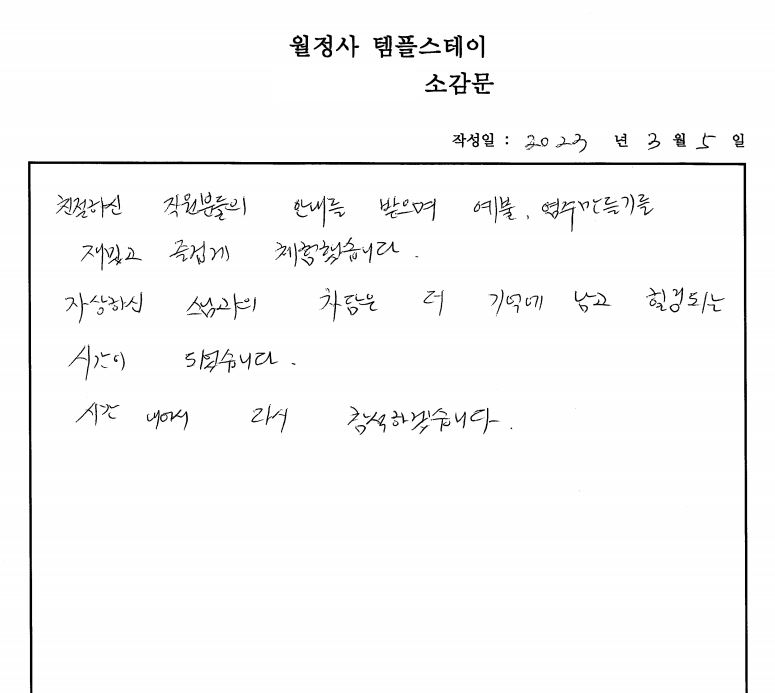 월정사 템플스테이
소감문
작성일 : 2023 년 3 월 5 일
친절하신 직원분들의 안내를 받으며 예불, 염주만들기를
재밌고 즐겁게 체험했습니다.
자상하신 스님과의 차담은 더 기억에 남고 힐링되는
시간이 되었습니다.
시간 내어서 다시 참석하겠습니다.